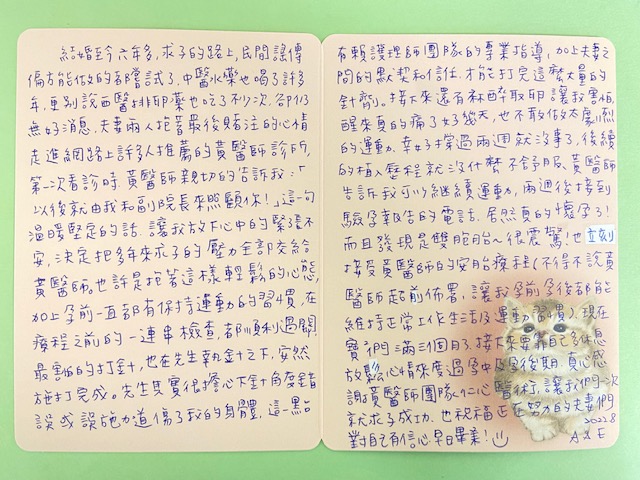 結婚至今六年多，求子的路上，民間謠傳
偏方能做的都嘗試了，中醫水藥也喝了許多
年，更別說西醫排卵藥也吃了不少次，卻仍
無好消息，夫妻兩人抱著最後賭注的心情
走進網路上許多人推薦的黃醫師診所，
第一次看診時，黃醫師親切的告訴我：「
以後就由我和副院長來照顧你！」這一句
溫暖堅定的話，讓我放下心中的緊張不
安，決定把多年來求子的壓力全部交給
黃醫師。也許是抱著這樣輕鬆的心態，
加上孕前一直都有保持運動的習慣，在
療程之前的一連串檢查，都順利過關，
最害怕的打針，也在先生執針之下，安然
施打完成。先生其實很擔心下針角度錯
誤或誤施力道傷了我的身體，這一點
有賴護理師團隊的專業指導，加上夫妻之
間的默契和信任，才能打完這麼大量的
針劑。接下來還有麻醉取卵讓我害怕，
醒來真的痛了好幾天，也不敢做太劇烈
的運動，幸好撐過兩週就沒事了，後續
的植入歷程就沒什麼不舒服，黃醫師
告訴我可以繼續運動，兩週後接到
驗孕報告的電話，居然真的懷孕了！
而且發現是雙胞胎～很震驚！也立刻
接受黃醫師的安胎療程（不得不說黃
醫師超前佈署，讓我孕前孕後都能
維持正常工作生活及運動習慣）。現在
寶寶們滿三個月了，接下來要靠自己多休息
放鬆心情來度過孕中及孕後期，真心感
謝黃醫師團隊仁心醫術，讓我們一次
就求子成功，也祝福正在努力的夫妻們
對自己有信心早日畢業！
2022.8
A&E